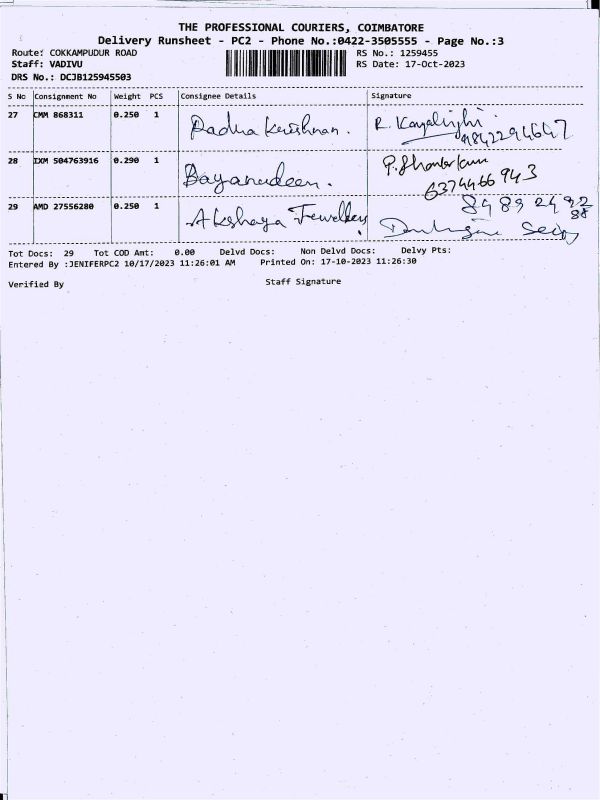 THE PROFESSIONAL COURIERS, COIMBATORE
Delivery Runsheet - PC2 - Phone No.:0422-3505555 - Page No.:3
Route: COKKAMPUDUR ROAD RS No.: 1259455
Staff: VADIVU RS Date: 17-Oct-2023
DRS No.: DCJB125945503
S No Consignment No Weight PCS Consignee Details Signature
27 CMM 868311 0.250 1 Radha Krishnan. R.
28 IXM 504763916 0.290 1 P.
6374466943
29 AMD 27556280 0.250 1 Akshaya Jewellery
Tot Docs: 29 Tot COD Amt: 0.00 Delvd Docs: Non Delvd Docs: Delvy Pts:
Entered By :JENIFERPC2 10/17/2023 11:26:01 AM Printed On: 17-10-2023 11:26:30
Verified By Staff Signature